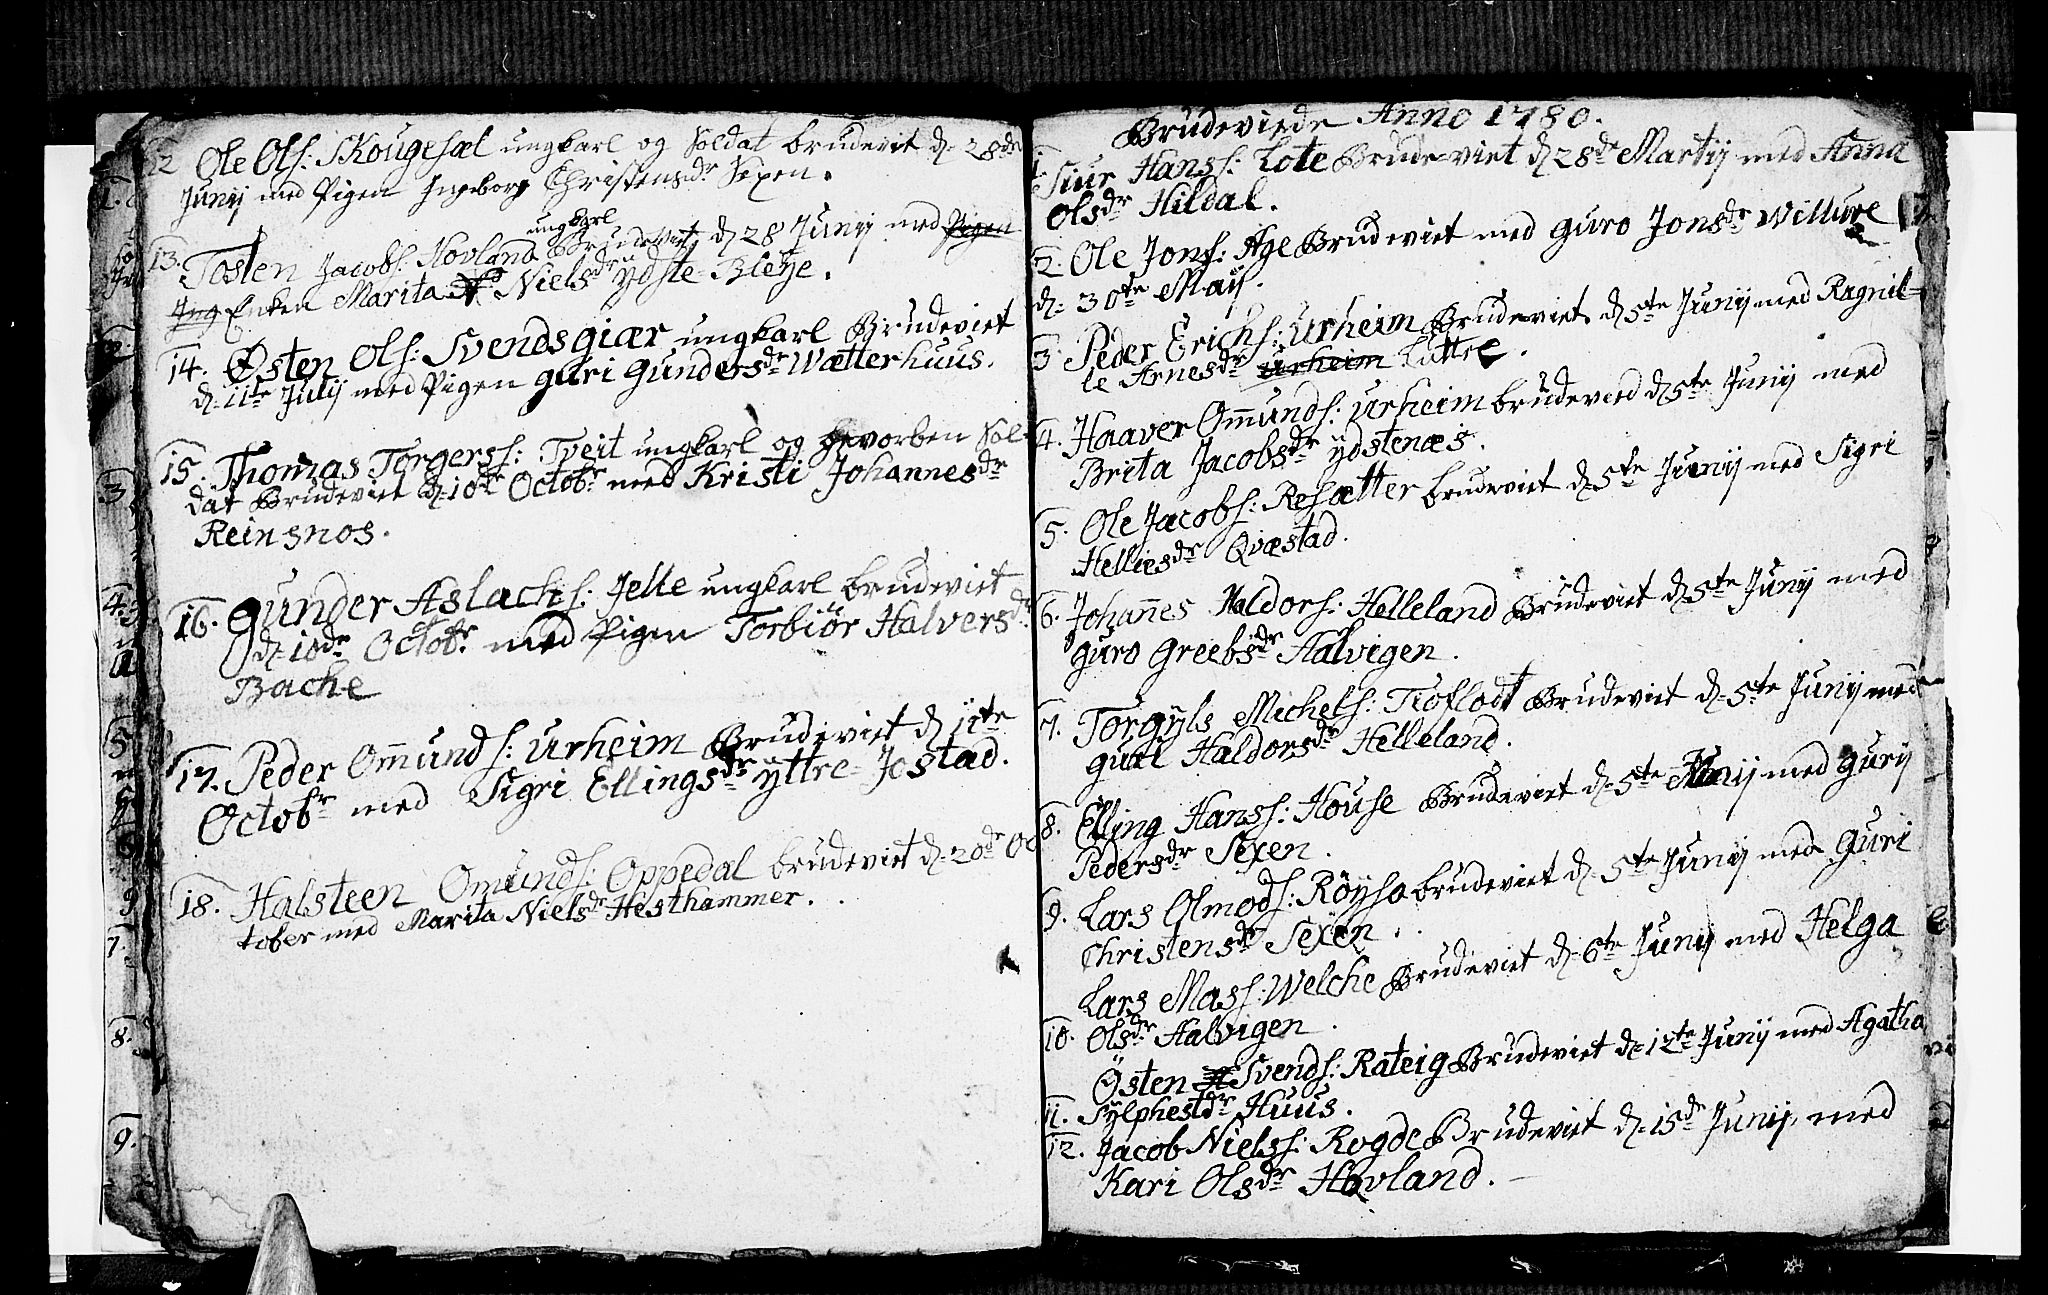 12 Ole Ols: Skougesæl ungkarl og Soldat brudeviet d. 28de
Junij med Pigen Ingeborg Christensdr Sexen.
ungkarl
13. Tosten Jacobs: Hovland Brudeviet d 28 Junij med Pigen
Ing Enken Marita Nielsdr ÿdste-Bleÿe.
14. Østen Ols: Svendsgiær ungkarl Brudeviet
d. 11te Julij med Pigen guri Gundersdr Wætterhuus.
15. Thomas Torgerss: Tveit ungkarl og hevorben Sol-
dat Brudeviet d. 10de Octobr med Kristi Johannesdr
Reinsnos.
16. Gunder Aslachs: Jelle ungkarl brudeviet
d. 10de Octobr med Pigen Torbiör Halversdr
Bache
17. Peder Om̄unds: Urheim Brudeviet d 11te
Octobr med Sigri Ellingsdr ÿttre-Jostad.
18. Halsteen Omunds: Oppedal brudeviet d. 20de Oc
tober med Marita Nielsdr Hesthammer.
Brudeviede Anno 1780.
1. Siur Hanss: Lote Brudeviet d 28de Martij med Anna
Olsdr Hildal.
2. Ole Jons: Age Brudeviet med guro Jonsdr Willure
d. 30te Maÿ.
3. Peder Erichs: Urheim Brudeviet d 5te Junij med Ragnil-
le Arnesdr Urheim Luttre.
4. Haaver Om̄unds: Urheim brudevied d 5te Junij med
Brita Jacobsdr ÿdstenæs.
5. Ole Jacobs: Resætter brudeviet d. 5te Junij med Sigri
Helliesdr Qvæstad.
6. Johan̄es Haldors: Helleland Brudeviet d 5te Junij med
guro Greebsdr Halvigen.
7. Torgÿls Michels: Tioflodt Brudeviet d. 5te Junij med
guri Haldorsdr Helleland.
8. Elling Hanss: House Brudeviet d. 5te Junij med gurij
Pedersdr Sexen.
9. Lars Olmods: Röÿsø brudeviet d. 5te Junij med guri
Christensdr Sexen.
Lars Mass: Welche Brudeviet d. 6te Junij med Helga
10. Olsdr Halvigen.
Östen Svends: Rateig Brudeviet d. 12te Junij med Agatha
11. Sÿlphestdr Huus.
12. Jacob Nielss: Rogde Brudeviet d. 15de Junij med
Kari Olsdr Hovland.